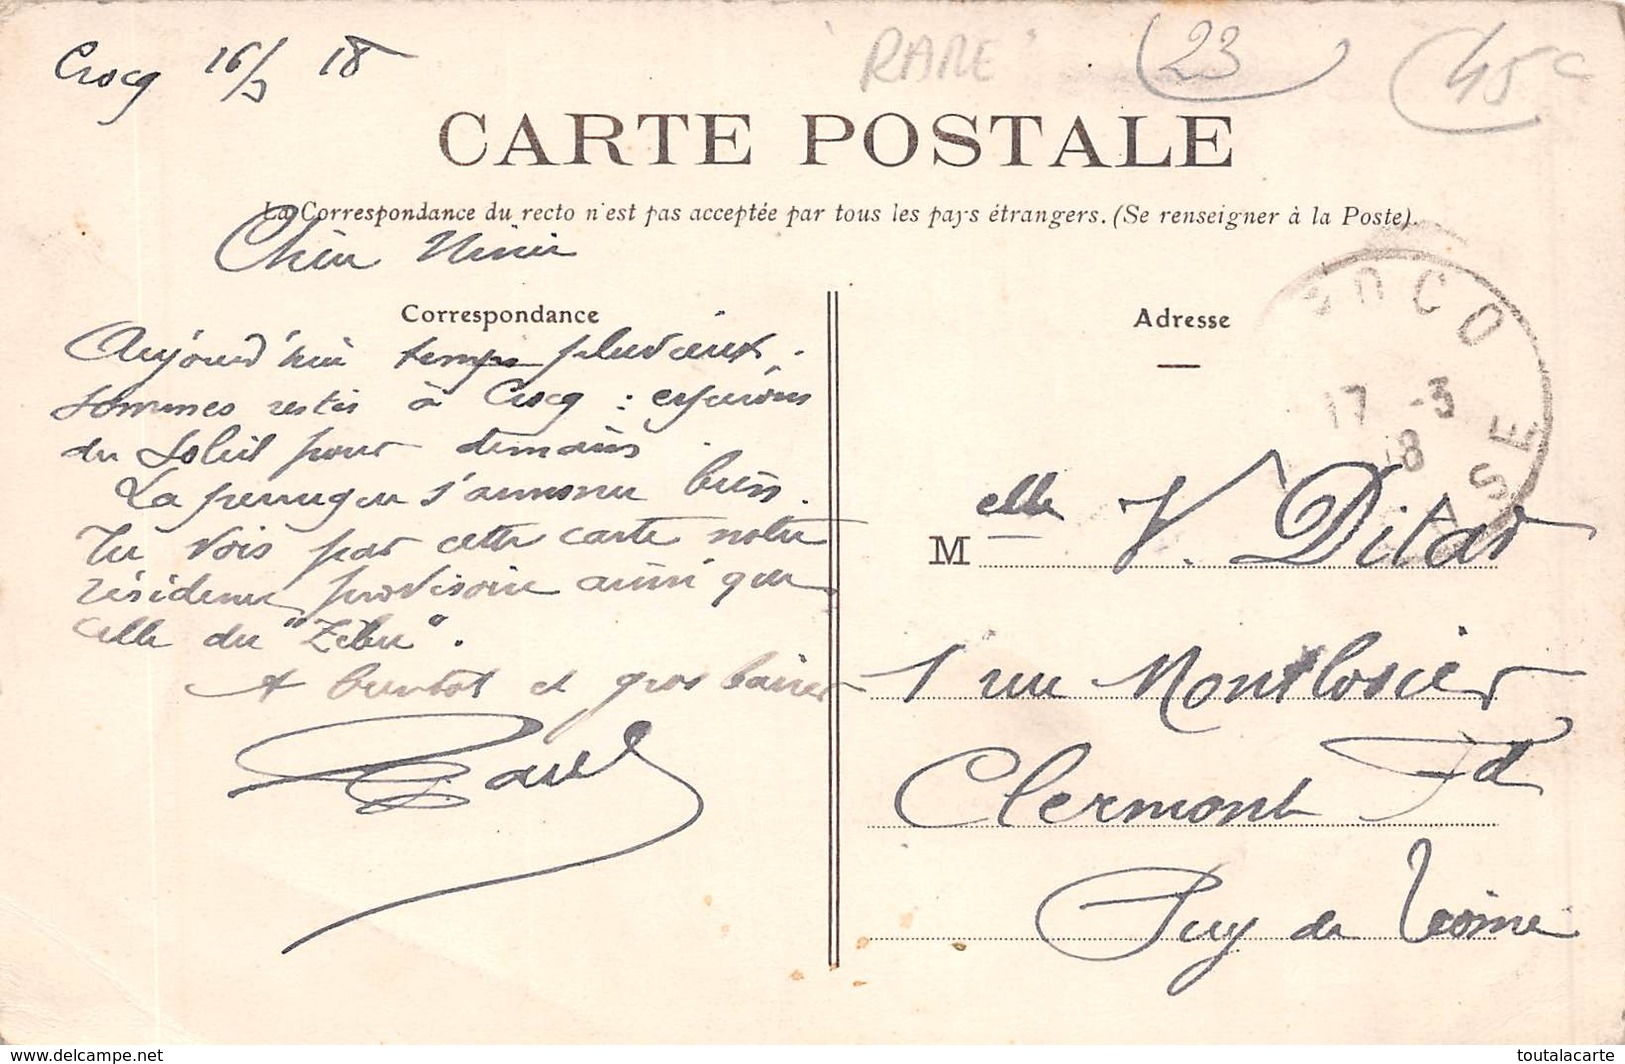 Crocq 16/3 18
"RARE"
23
45 c
CARTE POSTALE
La Correspondance du recto n'est pas acceptée par tous les pays étrangers. (Se renseigner à la Poste).
Correspondance
Aujourd'hui temps pluvieux.
Sommes restés à Crocq : espérons
du soleil pour demain.
La s'annonce bien.
Tu vois par cette carte notre
résidence provisoire ainsi que
celle du "Zébu".
A bientôt et gros baisers
Adresse
17 -3
18
Melle V. Ditar
1 rue Montlosier
Clermont Fd
Puy de Dôme
www.delcampe.net
toutalacarte